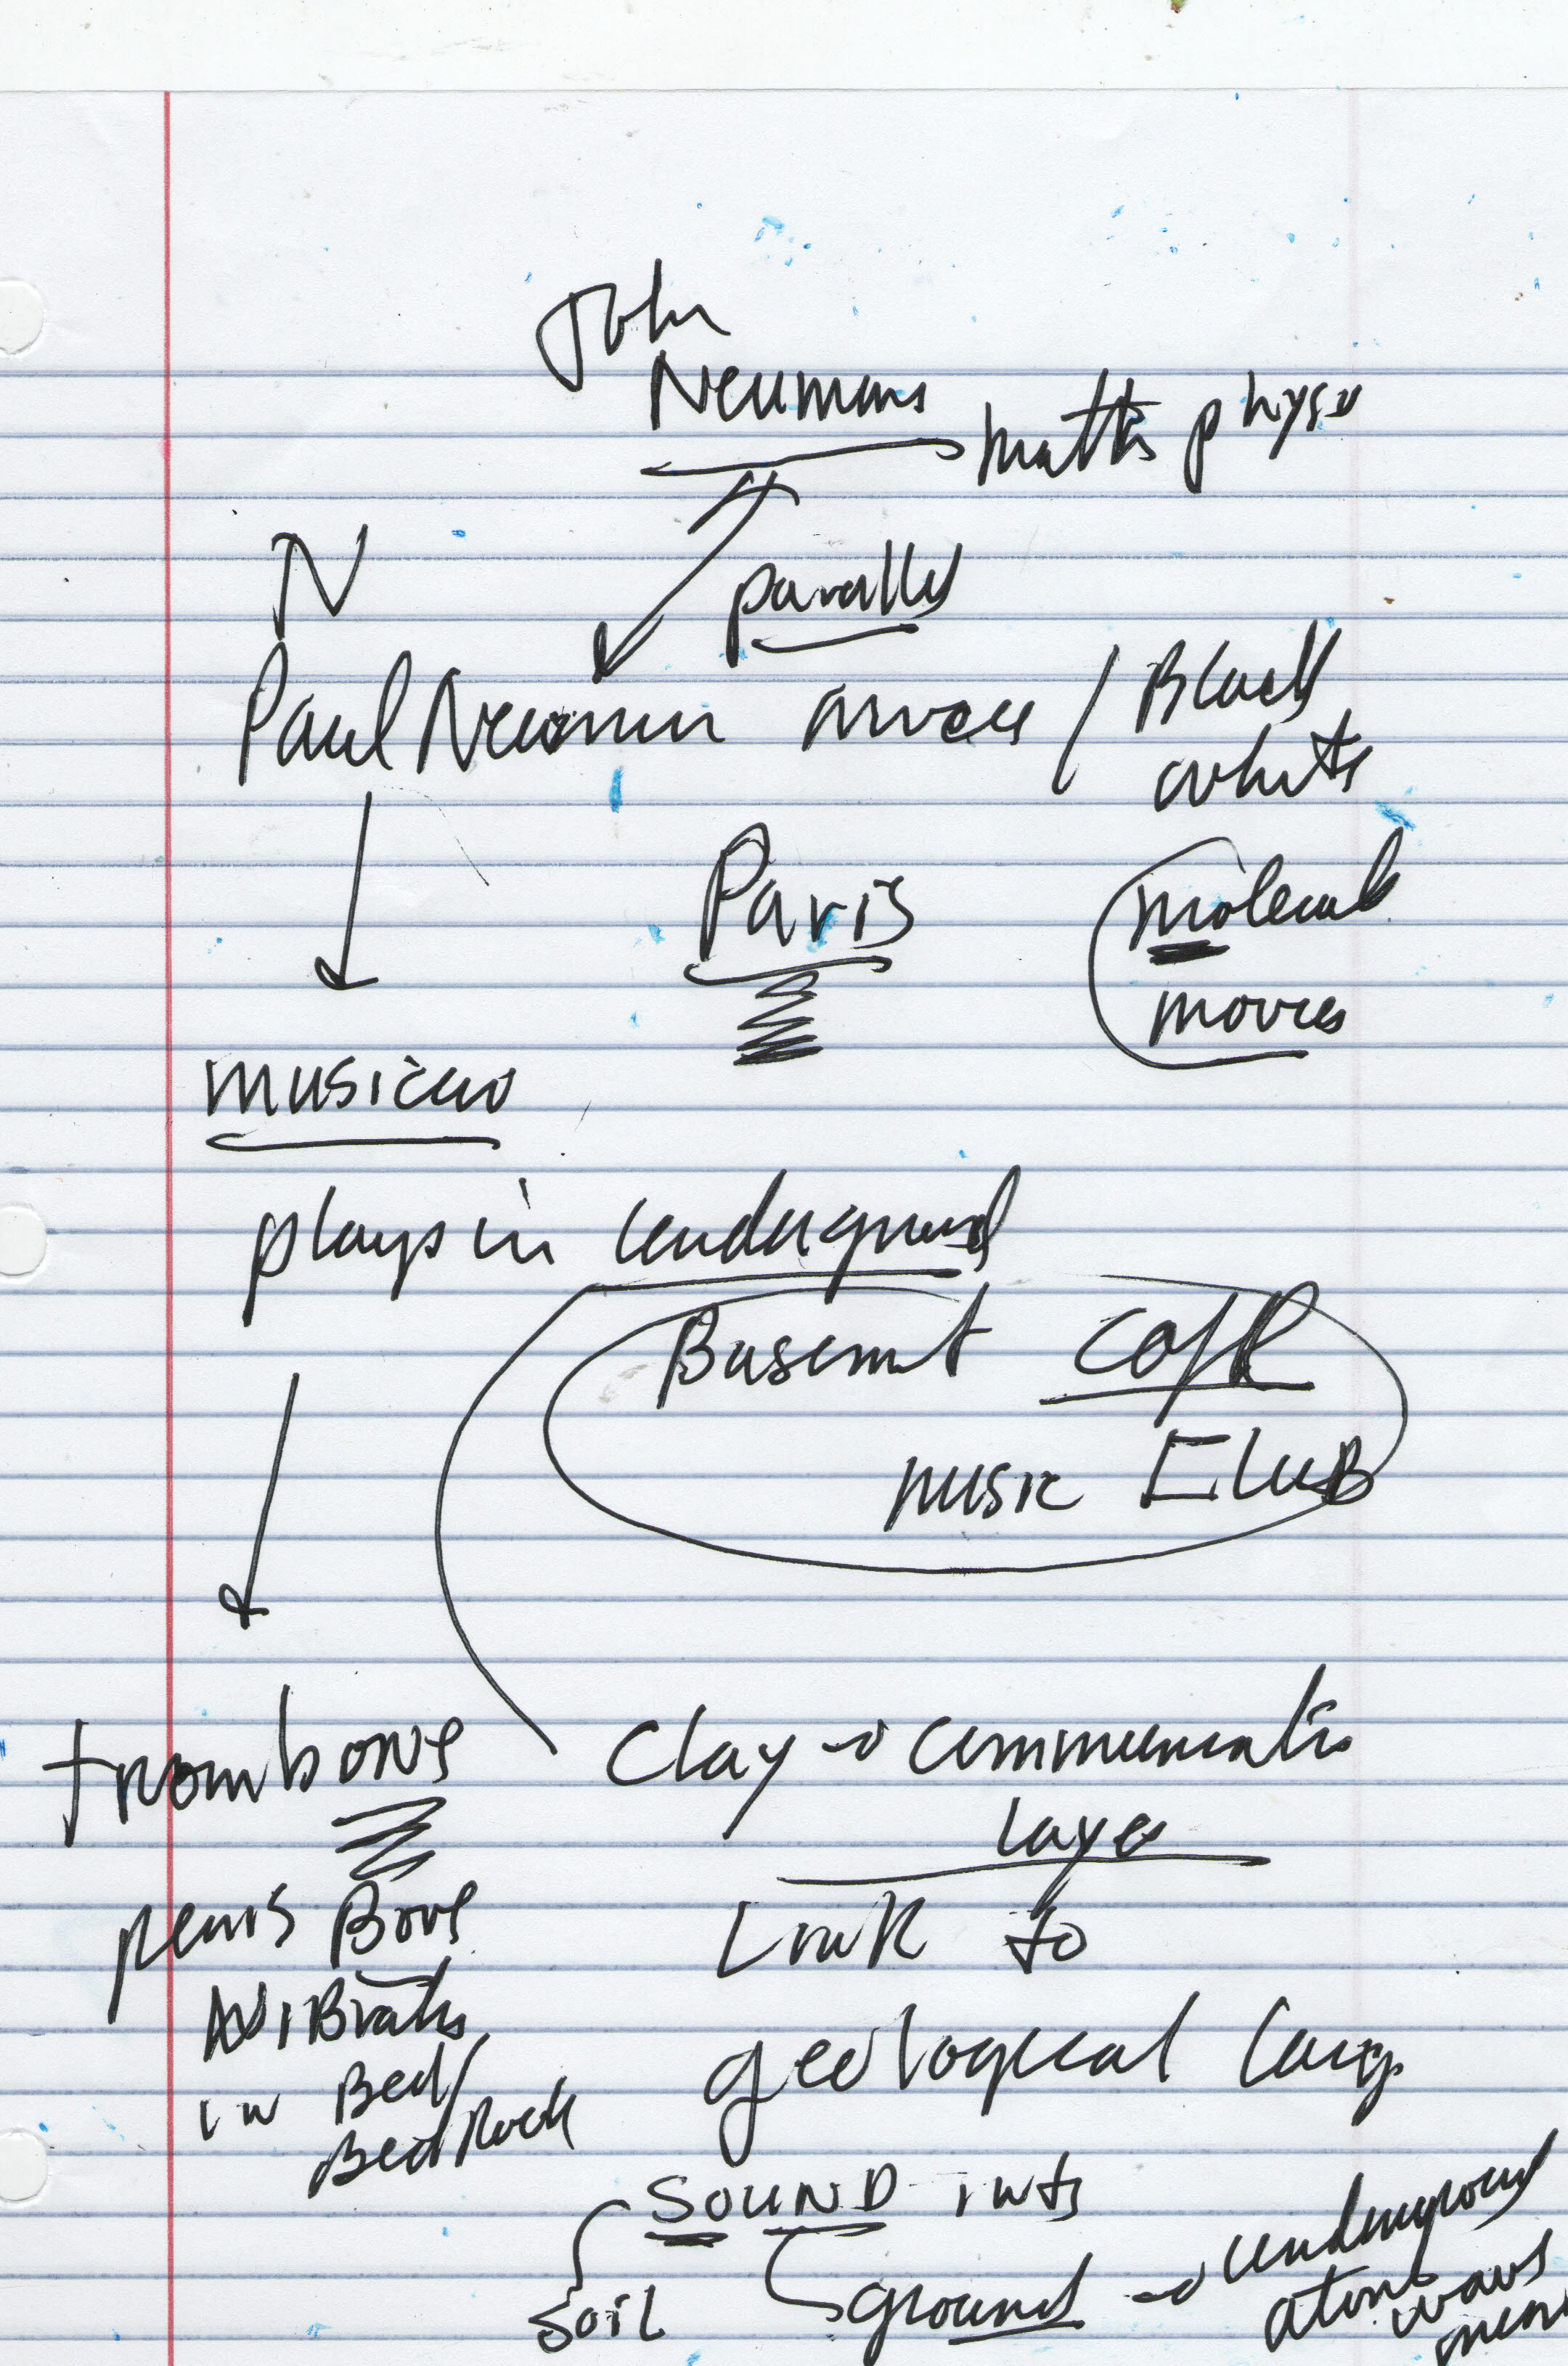 John
Neumann maths physu
N
parallls
Paul Newman movie / Black
white
Paris molecul
movies
musician
plays in underground
Basemnt
music Club
trombone Clay communicatio
layer
penis Bone Link to
ViBrates
in Bed/ geological
Bed/Rock
SOUND into
underground
soil ground atomic
waves